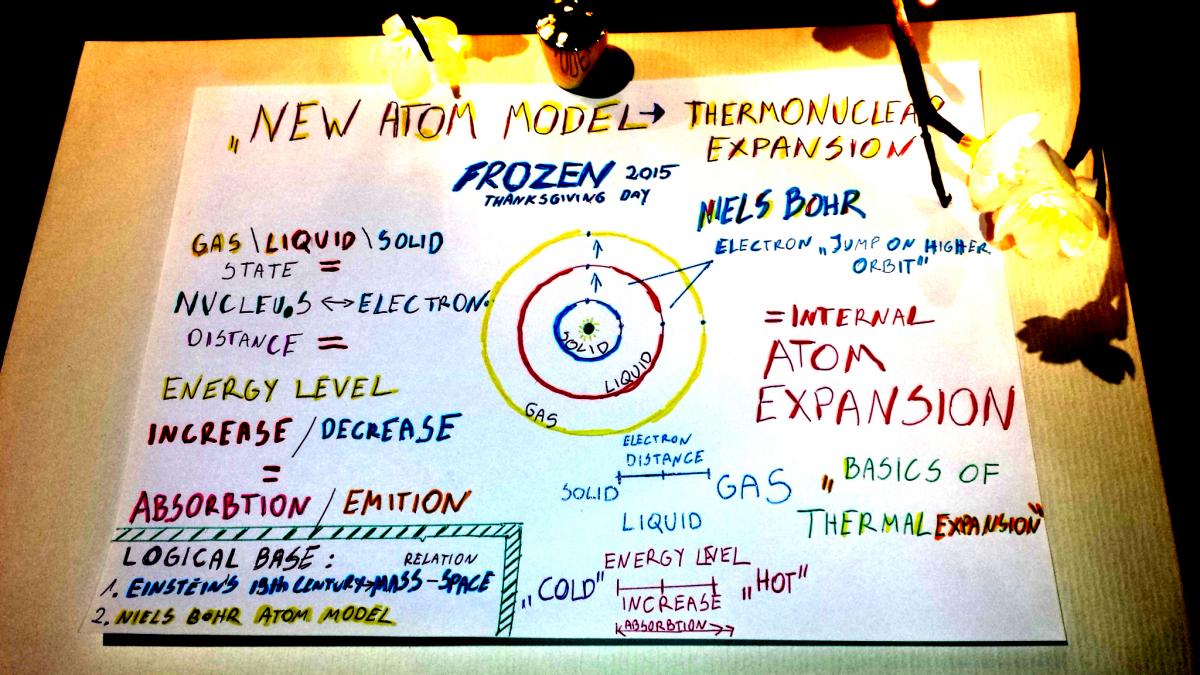 „NEW ATOM MODEL → THERMONUCLEAR
EXPANSION
FROZEN 2015
THANKSGIVING DAY
NIELS BOHR
ELECTRON „JUMP ON HIGHER
ORBIT"
GAS \ LIQUID \ SOLID
STATE =
NUCLEUS ↔ ELECTRON
DISTANCE =
ENERGY LEVEL
INCREASE / DECREASE
=
ABSORBTION / EMITION
SOLID
LIQUID
GAS
= INTERNAL
ATOM
EXPANSION
„BASICS OF
THERMAL EXPANSION"
ELECTRON
DISTANCE
SOLID GAS
LIQUID
ENERGY LEVEL
„COLD" „HOT"
INCREASE
ABSORBTION
LOGICAL BASE: RELATION
1. EINSTEIN'S 19th CENTURY → MASS-SPACE
2. NIELS BOHR ATOM MODEL